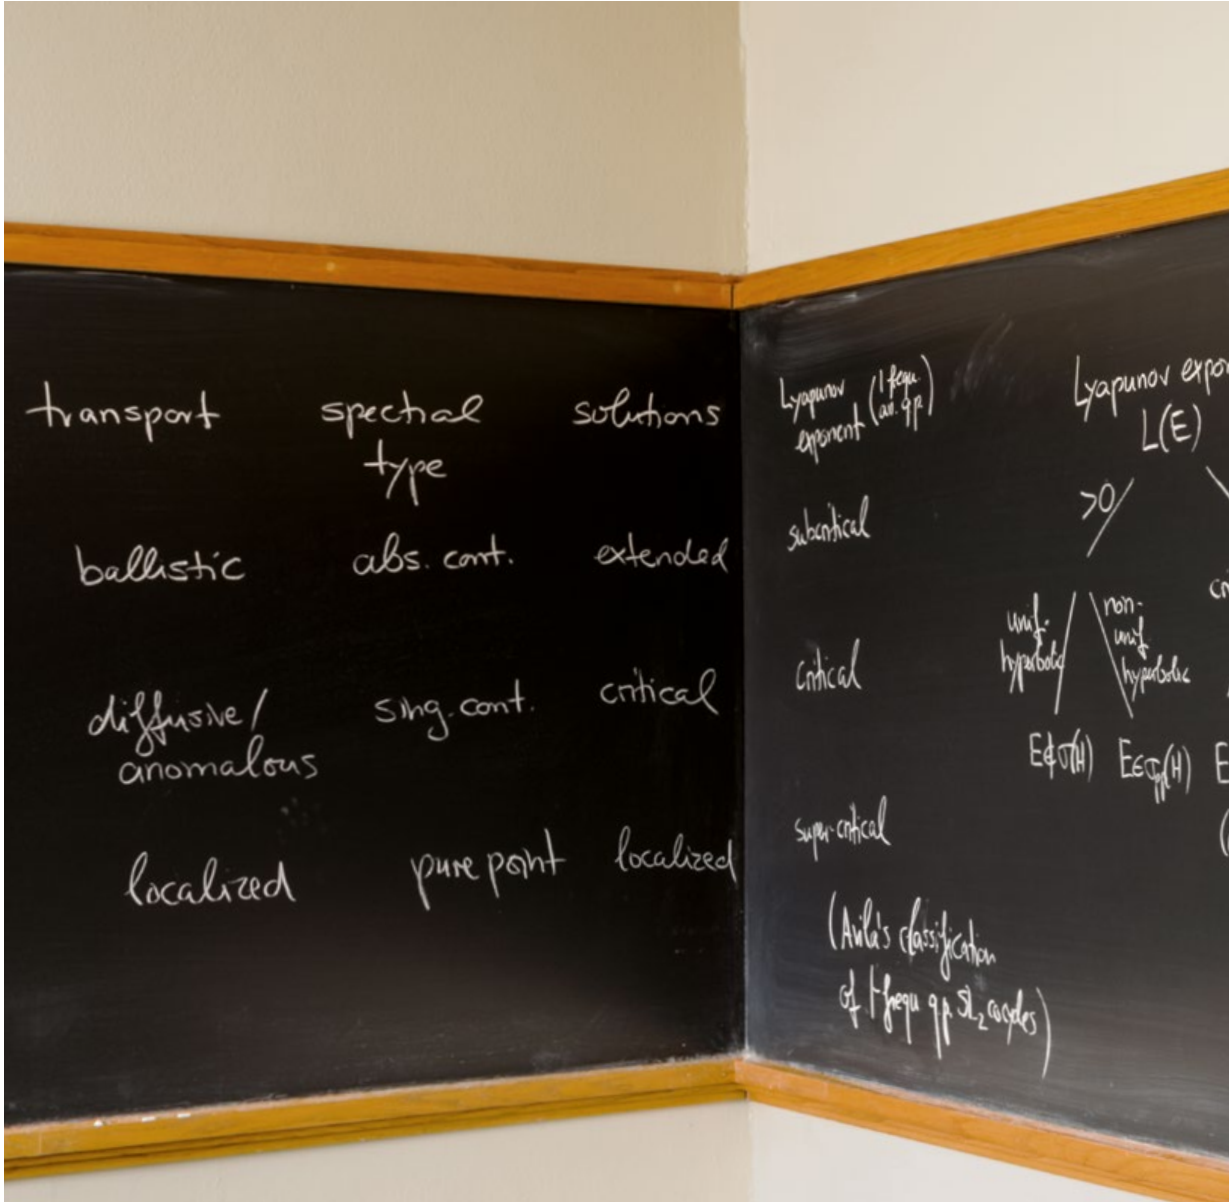 transport spectral solutions
type
ballistic abs. cont. extended
diffusive/ sing. cont. critical
anomalous
localized pure point localized
Lyapunov (1 frequ.
exponent an. q.p.)
subcritical
critical
super-critical
(Avila's classification
of 1-frequ q.p. SL₂ cocycles)
Lyapunov expon
L(E)
>0
unif. non-
hyperbolic unif
hyperbolic
E∉σ(H) E∈σpp(H) E